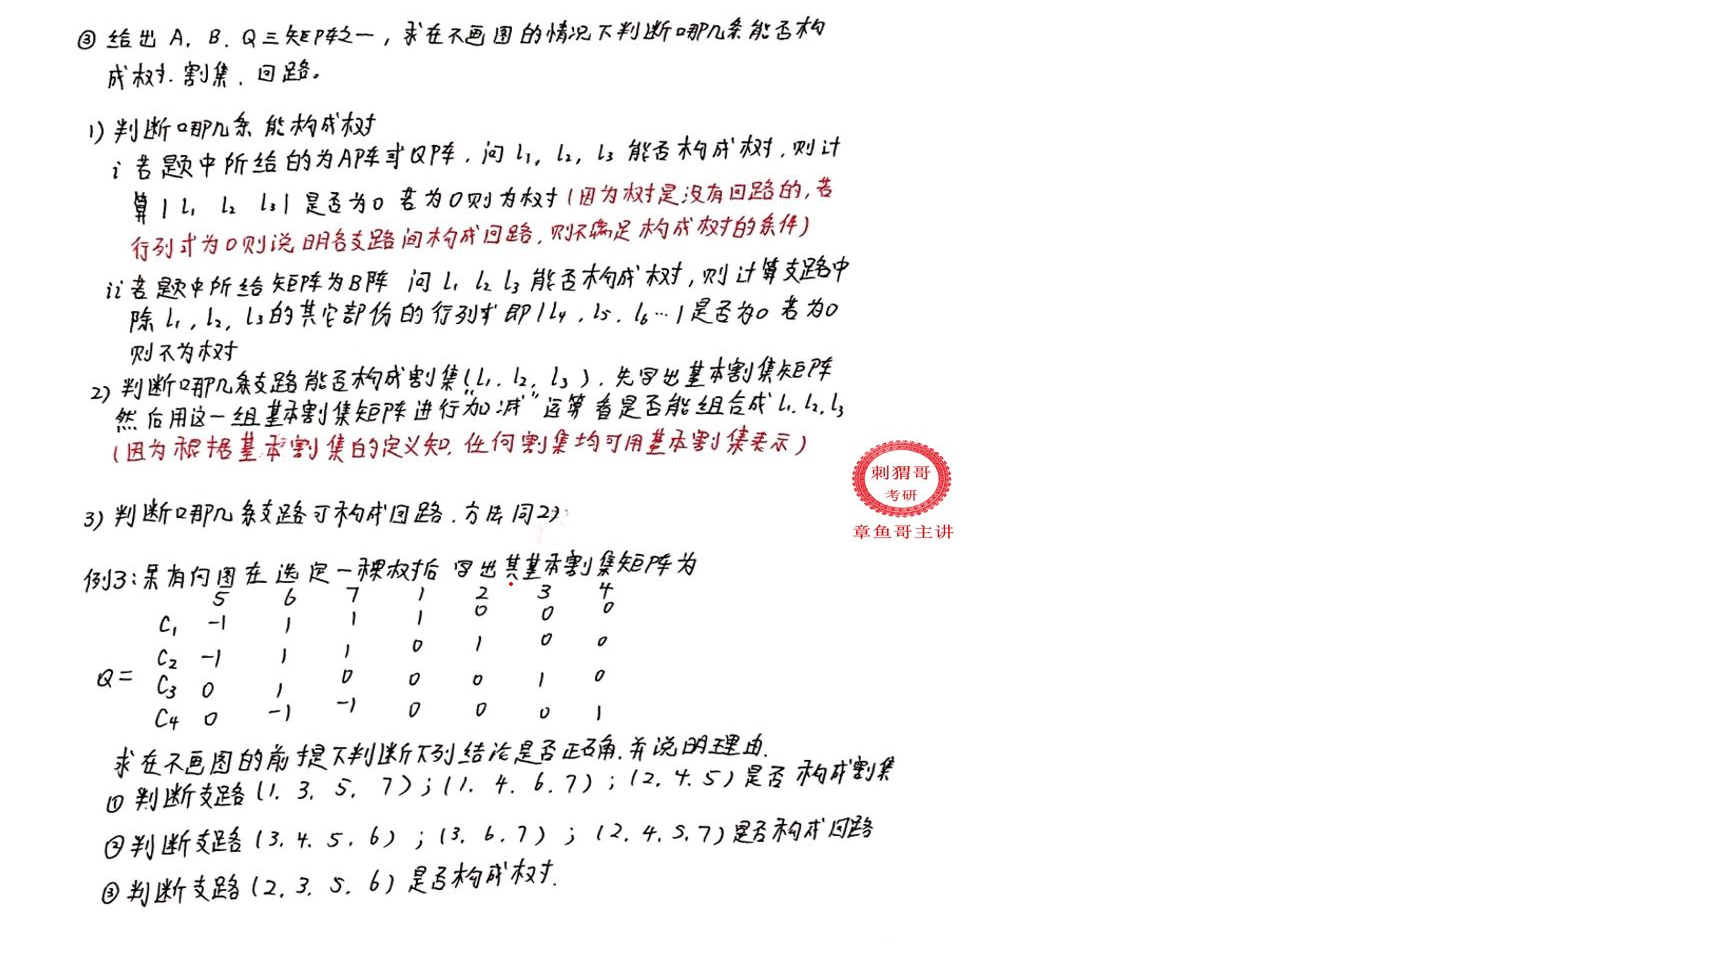 ③ 给出 A. B. Q 三矩阵之一，求在不画图的情况下判断哪几条能否构
成树. 割集、回路。
1) 判断哪几条能构成树
i 若题中所给的为A阵或Q阵. 问 l₁, l₂, l₃ 能否构成树, 则计
算 | l₁ l₂ l₃ | 是否为0 若为0则为树 (因为树是没有回路的, 若
行列式为0则说明各支路间构成回路, 则不满足构成树的条件)
ii 若题中所给矩阵为B阵 问 l₁ l₂ l₃ 能否构成树, 则计算支路中
除 l₁, l₂, l₃的其它部份的行列式 即 | l₄, l₅, l₆ … | 是否为0 若为0
则不为树
2) 判断哪几条支路能否构成割集(l₁. l₂, l₃). 先写出基本割集矩阵
然后用这一组基本割集矩阵进行“加减”运算看是否能组合成 l₁. l₂. l₃
(因为根据基本割集的定义知, 任何割集均可用基本割集表示)
刺猬哥
考研
章鱼哥主讲
3) 判断哪几条支路可构成回路. 方法同2)
例3: 某有向图在选定一棵树后 写出其基本割集矩阵为
5 6 7 1 2 3 4
C₁ -1 1 1 1 0 0 0
C₂ -1 1 1 0 1 0 0
Q= C₃ 0 1 0 0 0 1 0
C₄ 0 -1 -1 0 0 0 1
求在不画图的前提下判断下列结论是否正确. 并说明理由.
① 判断支路 (1. 3. 5. 7) ; (1. 4. 6. 7) ; (2. 4. 5) 是否构成割集
② 判断支路 (3. 4. 5. 6) ; (3. 6. 7) ; (2. 4. 5. 7) 是否构成回路
③ 判断支路 (2. 3. 5. 6) 是否构成树.